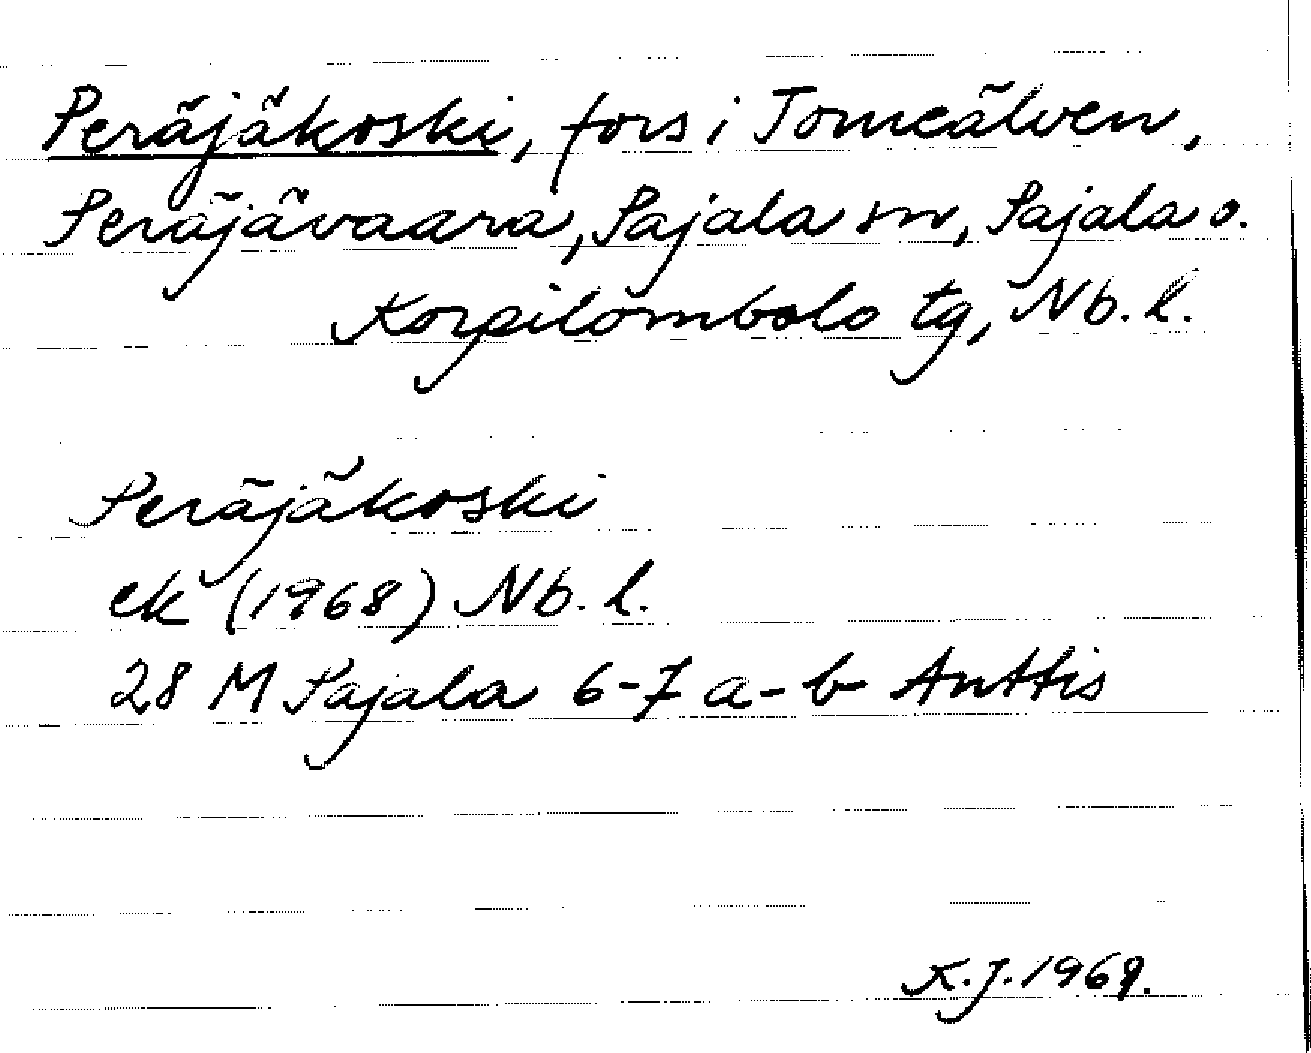 Peräjäkoski, fors i Torneälven,
Peräjävaara, Pajala sn, Pajala o.
Korpilombolo tg, Nb. l.
Peräjäkoski
ek (1968) Nb. l.
28 M Pajala 6-7 a-b Anttis
K.J. 1969.